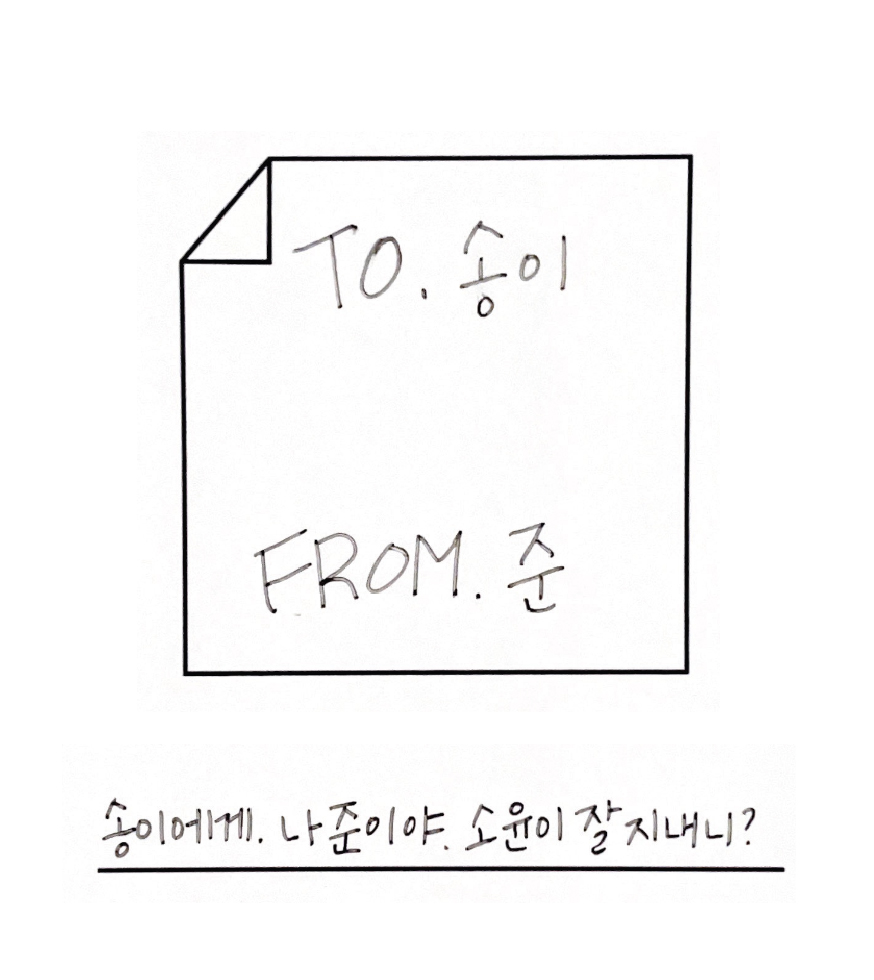 TO. 송이
FROM. 준
송이에게. 나 준이야. 소윤이 잘 지내니?